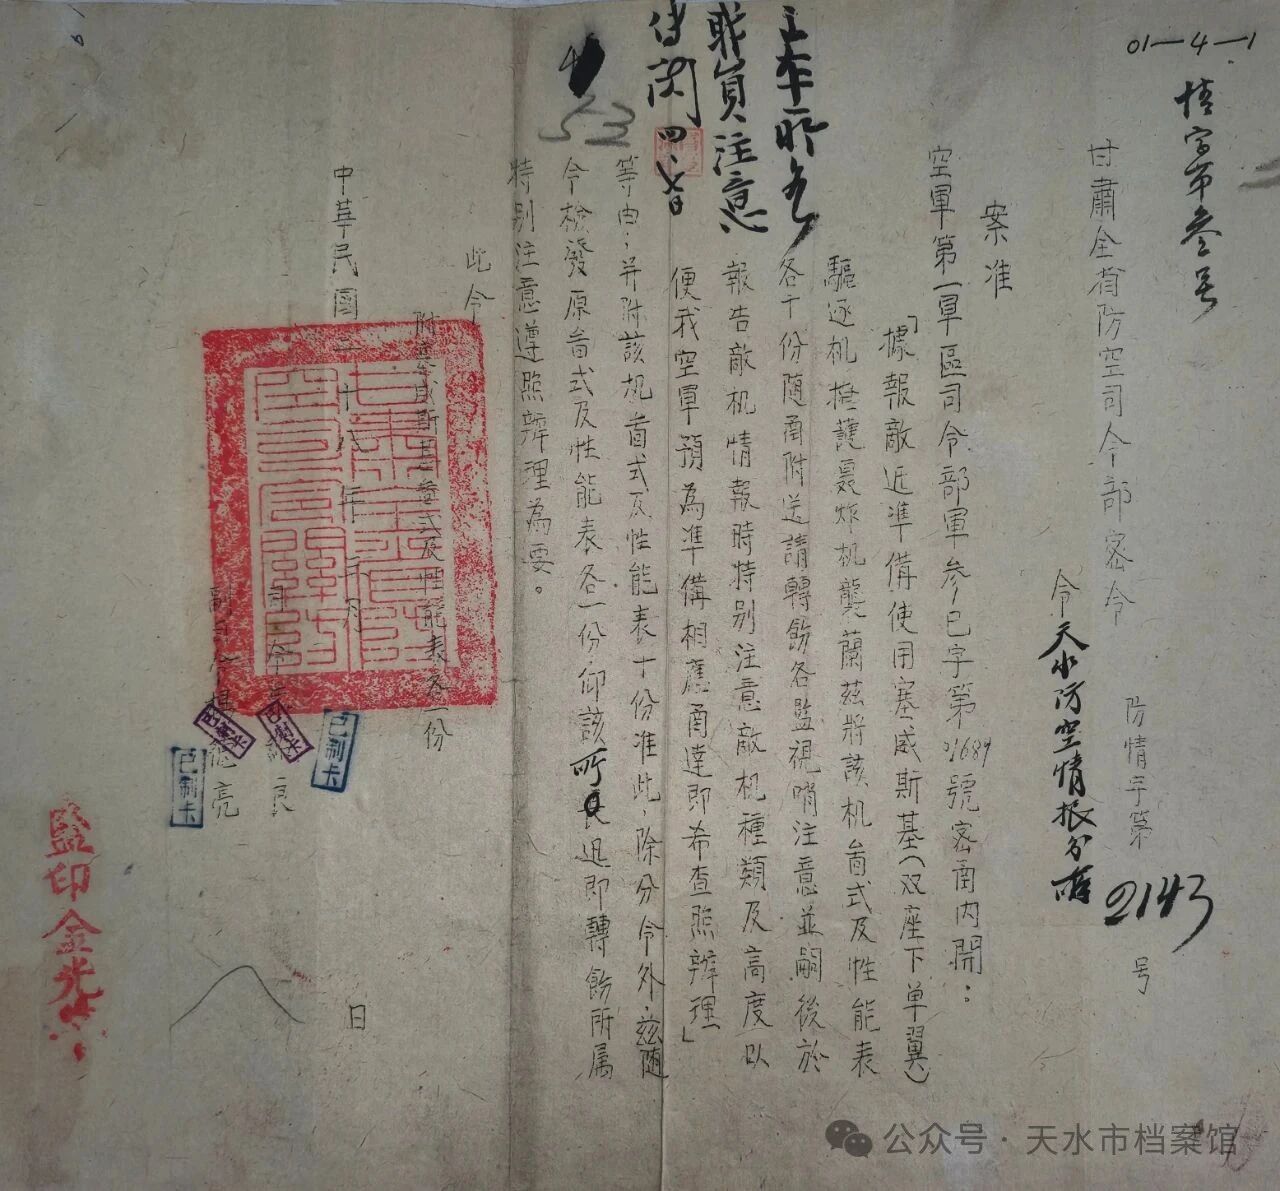 01—4—1
情字第叁号
甘肅全省防空司令部密令
防情字第2143号
令天水防空情报分所
案准
空軍第一軍區司令部軍参一巳字第01689號密函内開：
「據報敵近準備使用塞威斯基（双座下单翼）
驅逐机掩護轟炸机襲蘭茲將該机首式及性能表
各十份随函附送請轉飭各監視哨注意並嗣後於
報告敵机情報時特别注意敵机種類及高度以
便我空軍預為準備相應函達即希查照辦理」
等由；并附該机首式及性能表十份准此，除分令外，茲随
令檢發原首式及性能表各一份，仰該所長迅即轉飭所属
特别注意遵照辦理為要。
此令
附塞威斯基首式及性能表各一份
中華民國二十八年 月 日
司令
良
副司令
亮
職員注意
傳閱 四、
53
已制卡
已制卡
已制卡
已制卡
監印金光
公众号 · 天水市档案馆